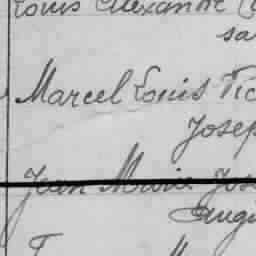 Louis Alexandre
sa
Marcel Louis Vic
Josep
Jean Marie Jos
Eugè